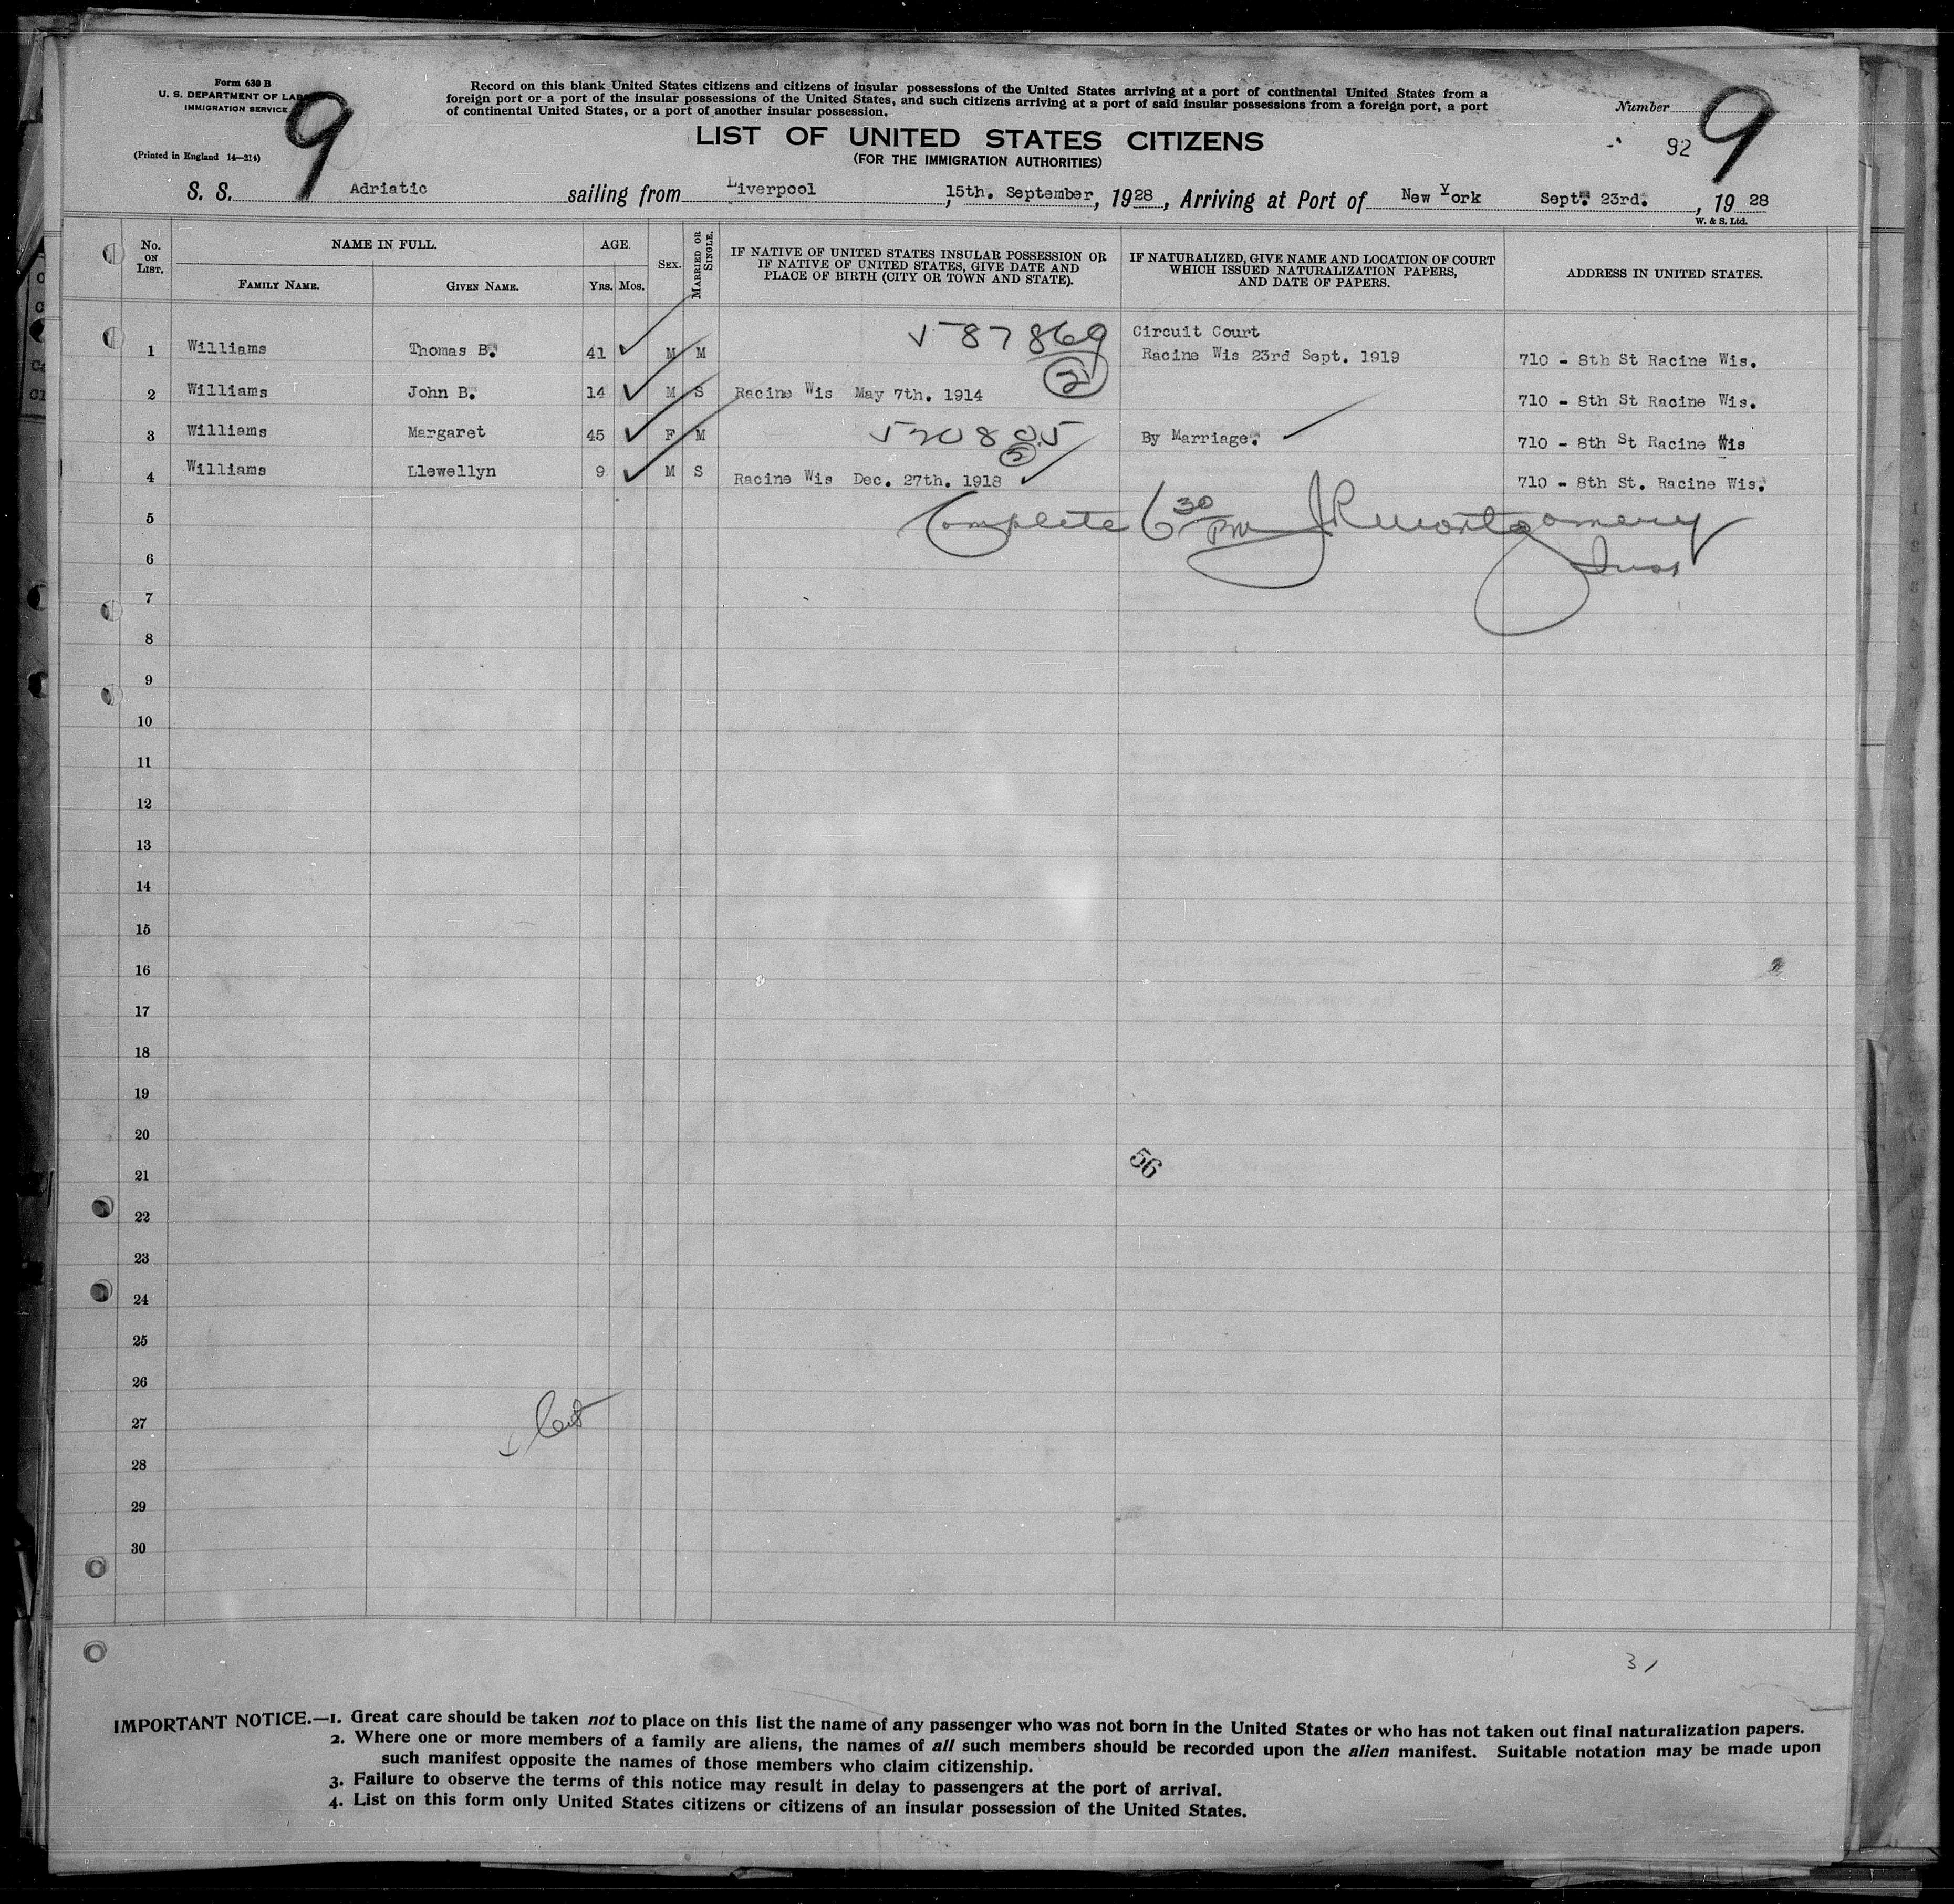 Form 630 B
U. S. DEPARTMENT OF LAB
IMMIGRATION SERVICE
(Printed in England 14—224)
9
Record on this blank United States citizens and citizens of insular possessions of the United States arriving at a port of continental United States from a
foreign port or a port of the insular possessions of the United States, and such citizens arriving at a port of said insular possessions from a foreign port, a port
of continental United States, or a port of another insular possession.
Number
92
9
LIST OF UNITED STATES CITIZENS
(FOR THE IMMIGRATION AUTHORITIES)
S. S. Adriatic sailing from Liverpool, 15th. September, 1928, Arriving at Port of New York Sept. 23rd., 1928
W. & S. Ltd.
No. ON LIST.
NAME IN FULL.
FAMILY NAME.
GIVEN NAME.
AGE.
YRS. MOS.
SEX.
MARRIED OR SINGLE.
IF NATIVE OF UNITED STATES INSULAR POSSESSION OR
IF NATIVE OF UNITED STATES, GIVE DATE AND
PLACE OF BIRTH (CITY OR TOWN AND STATE).
IF NATURALIZED, GIVE NAME AND LOCATION OF COURT
WHICH ISSUED NATURALIZATION PAPERS,
AND DATE OF PAPERS.
ADDRESS IN UNITED STATES.
587869
2
Circuit Court
1 Williams Thomas B. 41 M M Racine Wis 23rd Sept. 1919 710 - 8th St Racine Wis.
2 Williams John B. 14 M S Racine Wis May 7th. 1914 710 - 8th St Racine Wis.
520805
2
3 Williams Margaret 45 F M By Marriage. 710 - 8th St Racine Wis
4 Williams Llewellyn 9 M S Racine Wis Dec. 27th. 1918 710 - 8th St. Racine Wis.
Complete 6 30 PM JR Montgomery
Insp
5
6
7
8
9
10
11
12
13
14
15
16
17
18
19
20
21
22
23
24
25
26
27
28
29
30
56
31
IMPORTANT NOTICE.—1. Great care should be taken not to place on this list the name of any passenger who was not born in the United States or who has not taken out final naturalization papers.
2. Where one or more members of a family are aliens, the names of all such members should be recorded upon the alien manifest. Suitable notation may be made upon
such manifest opposite the names of those members who claim citizenship.
3. Failure to observe the terms of this notice may result in delay to passengers at the port of arrival.
4. List on this form only United States citizens or citizens of an insular possession of the United States.